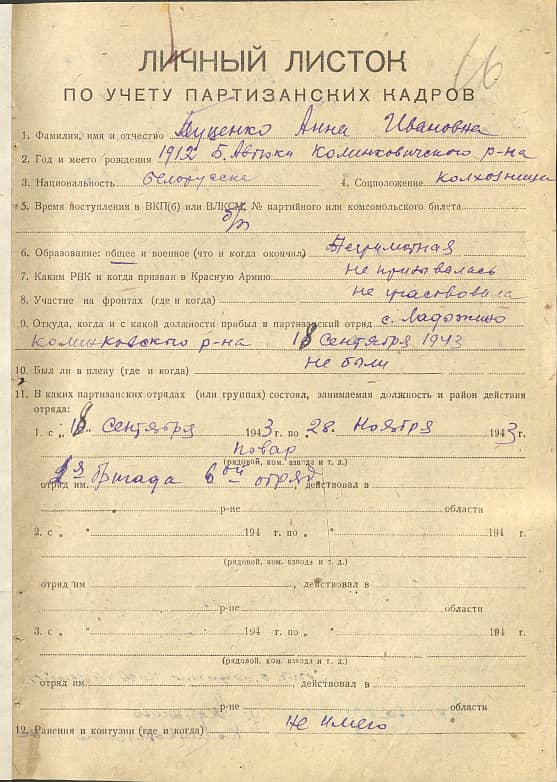 16
ЛИЧНЫЙ ЛИСТОК
ПО УЧЕТУ ПАРТИЗАНСКИХ КАДРОВ
1. Фамилия, имя и отчество Буценко Анна Ивановна
2. Год и место рождения 1912 Б. Автюки Калинковичского р-на
3. Национальность белорусска 4. Соцположение колхозница
5. Время поступления в ВКП(б) или ВЛКСМ, № партийного или комсомольского билета
б/п
6. Образование: общее и военное (что и когда окончил) Неграмотная
7. Каким РВК и когда призван в Красную Армию не призывалась
8. Участие на фронтах (где и когда) не участвовала
9. Откуда, когда и с какой должности прибыл в партизанский отряд с.
р-на 18 Сентября 1943
10. Был ли в плену (где и когда) не были
11. В каких партизанских отрядах (или группах) состоял, занимаемая должность и район действия
отряда:
1. с „18“ Сентября 1943 г. по „28. Ноября 1943 г.
повар
(рядовой, ком. взвода и т. д.)
отряд им. 2я бригада 6ой отряд действовал в
р-не области
2. с „ “ 194 г. по „ “ 194 г.
(рядовой, ком. взвода и т. д.)
отряд им , действовал в
р-не области
3. с „ “ 194 г. по „ “ 194 г.
(рядовой, ком. взвода и т. д.)
отряд им. , действовал в
р-не области
12. Ранения и контузии (где и когда) не имею